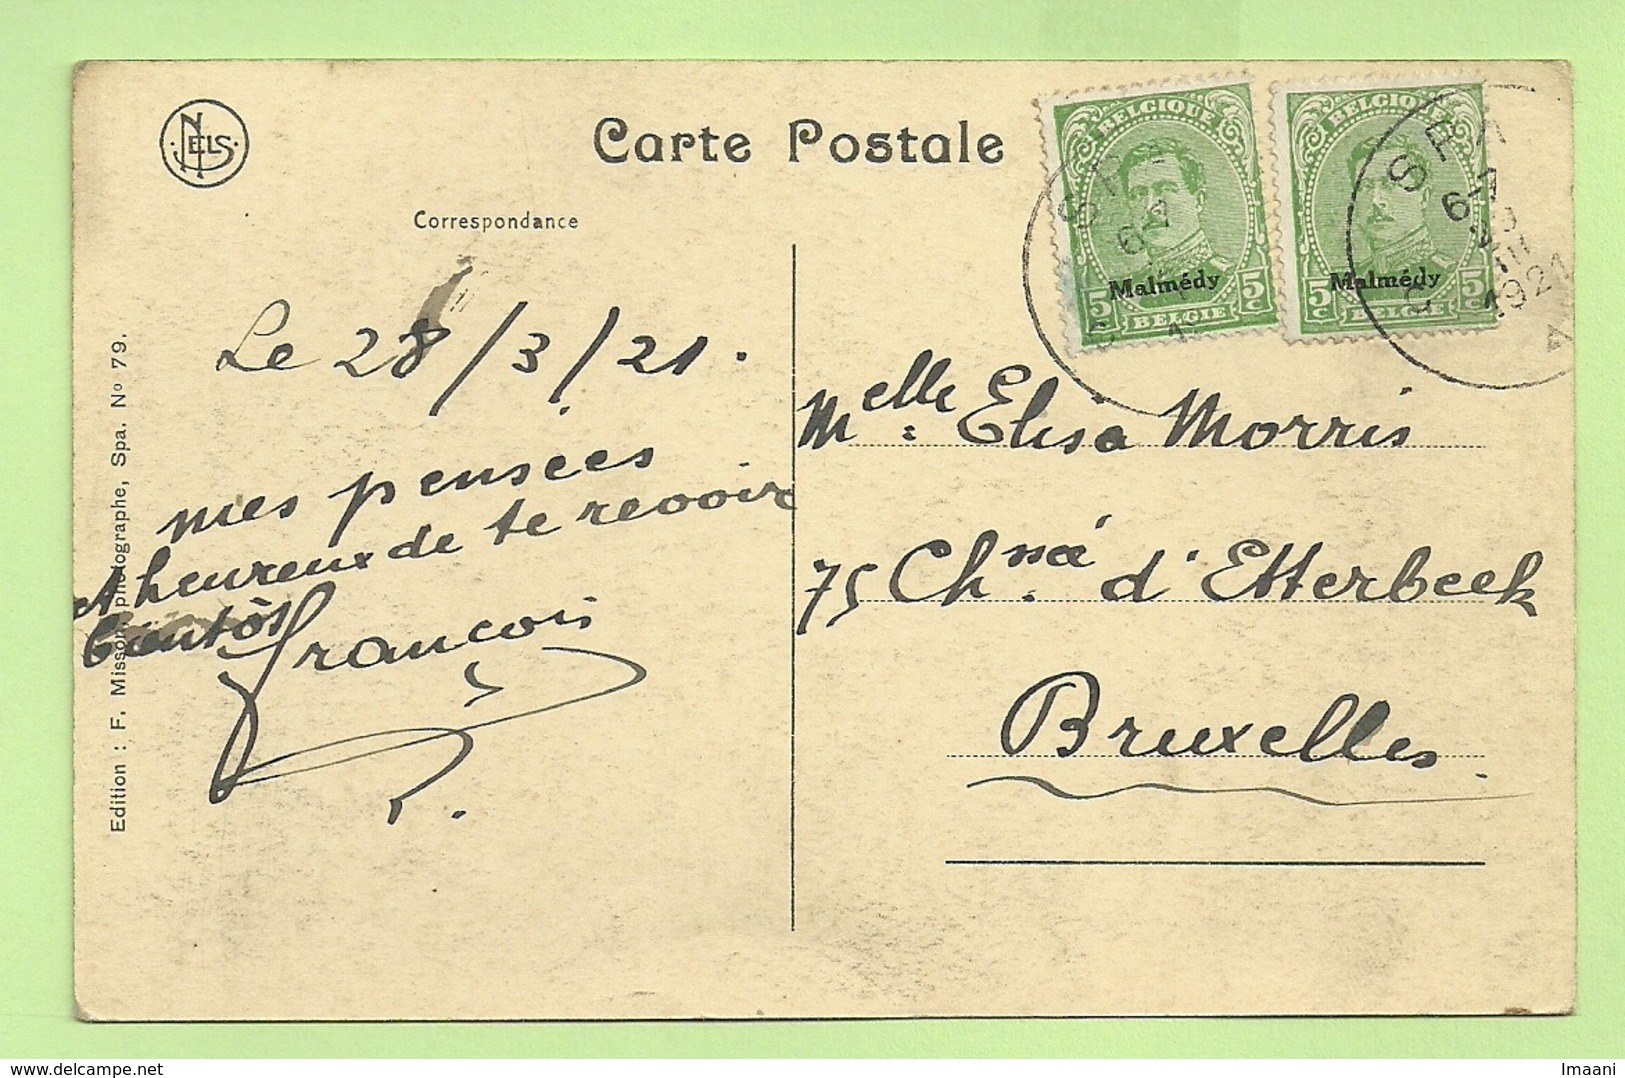 NELS
Carte Postale
Correspondance
BELGIQUE
Malmédy
5c 5c
BELGIE
BELGIQUE
Malmédy
5c 5c
BELGIE
SPA
6-7
SPA
6-7
1921
Le 28/3/21.
mes pensées
et heureux de te revoir
bientôt
François
Melle: Elisa Morris
75 Chnsée d'Etterbeek
Bruxelles.
Edition : F. Misson, photographe, Spa. No 79.
Imaani